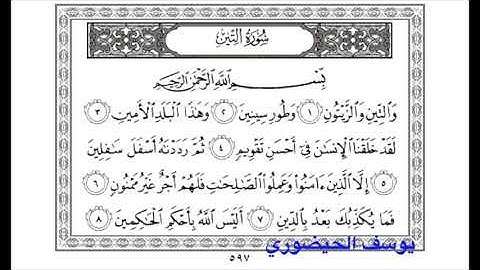 سُورَةُ التِّينِ
بِسْمِ اللَّهِ الرَّحْمَٰنِ الرَّحِيمِ
وَالتِّينِ وَالزَّيْتُونِ ١ وَطُورِ سِينِينَ ٢ وَهَٰذَا الْبَلَدِ الْأَمِينِ ٣
لَقَدْ خَلَقْنَا الْإِنسَٰنَ فِي أَحْسَنِ تَقْوِيمٍ ٤ ثُمَّ رَدَدْنَٰهُ أَسْفَلَ سَٰفِلِينَ
٥ إِلَّا الَّذِينَ ءَامَنُوا وَعَمِلُوا الصَّٰلِحَٰتِ فَلَهُمْ أَجْرٌ غَيْرُ مَمْنُونٍ ٦
فَمَا يُكَذِّبُكَ بَعْدُ بِالدِّينِ ٧ أَلَيْسَ اللَّهُ بِأَحْكَمِ الْحَٰكِمِينَ ٨
يوسف الحيضوري
٥٩٧